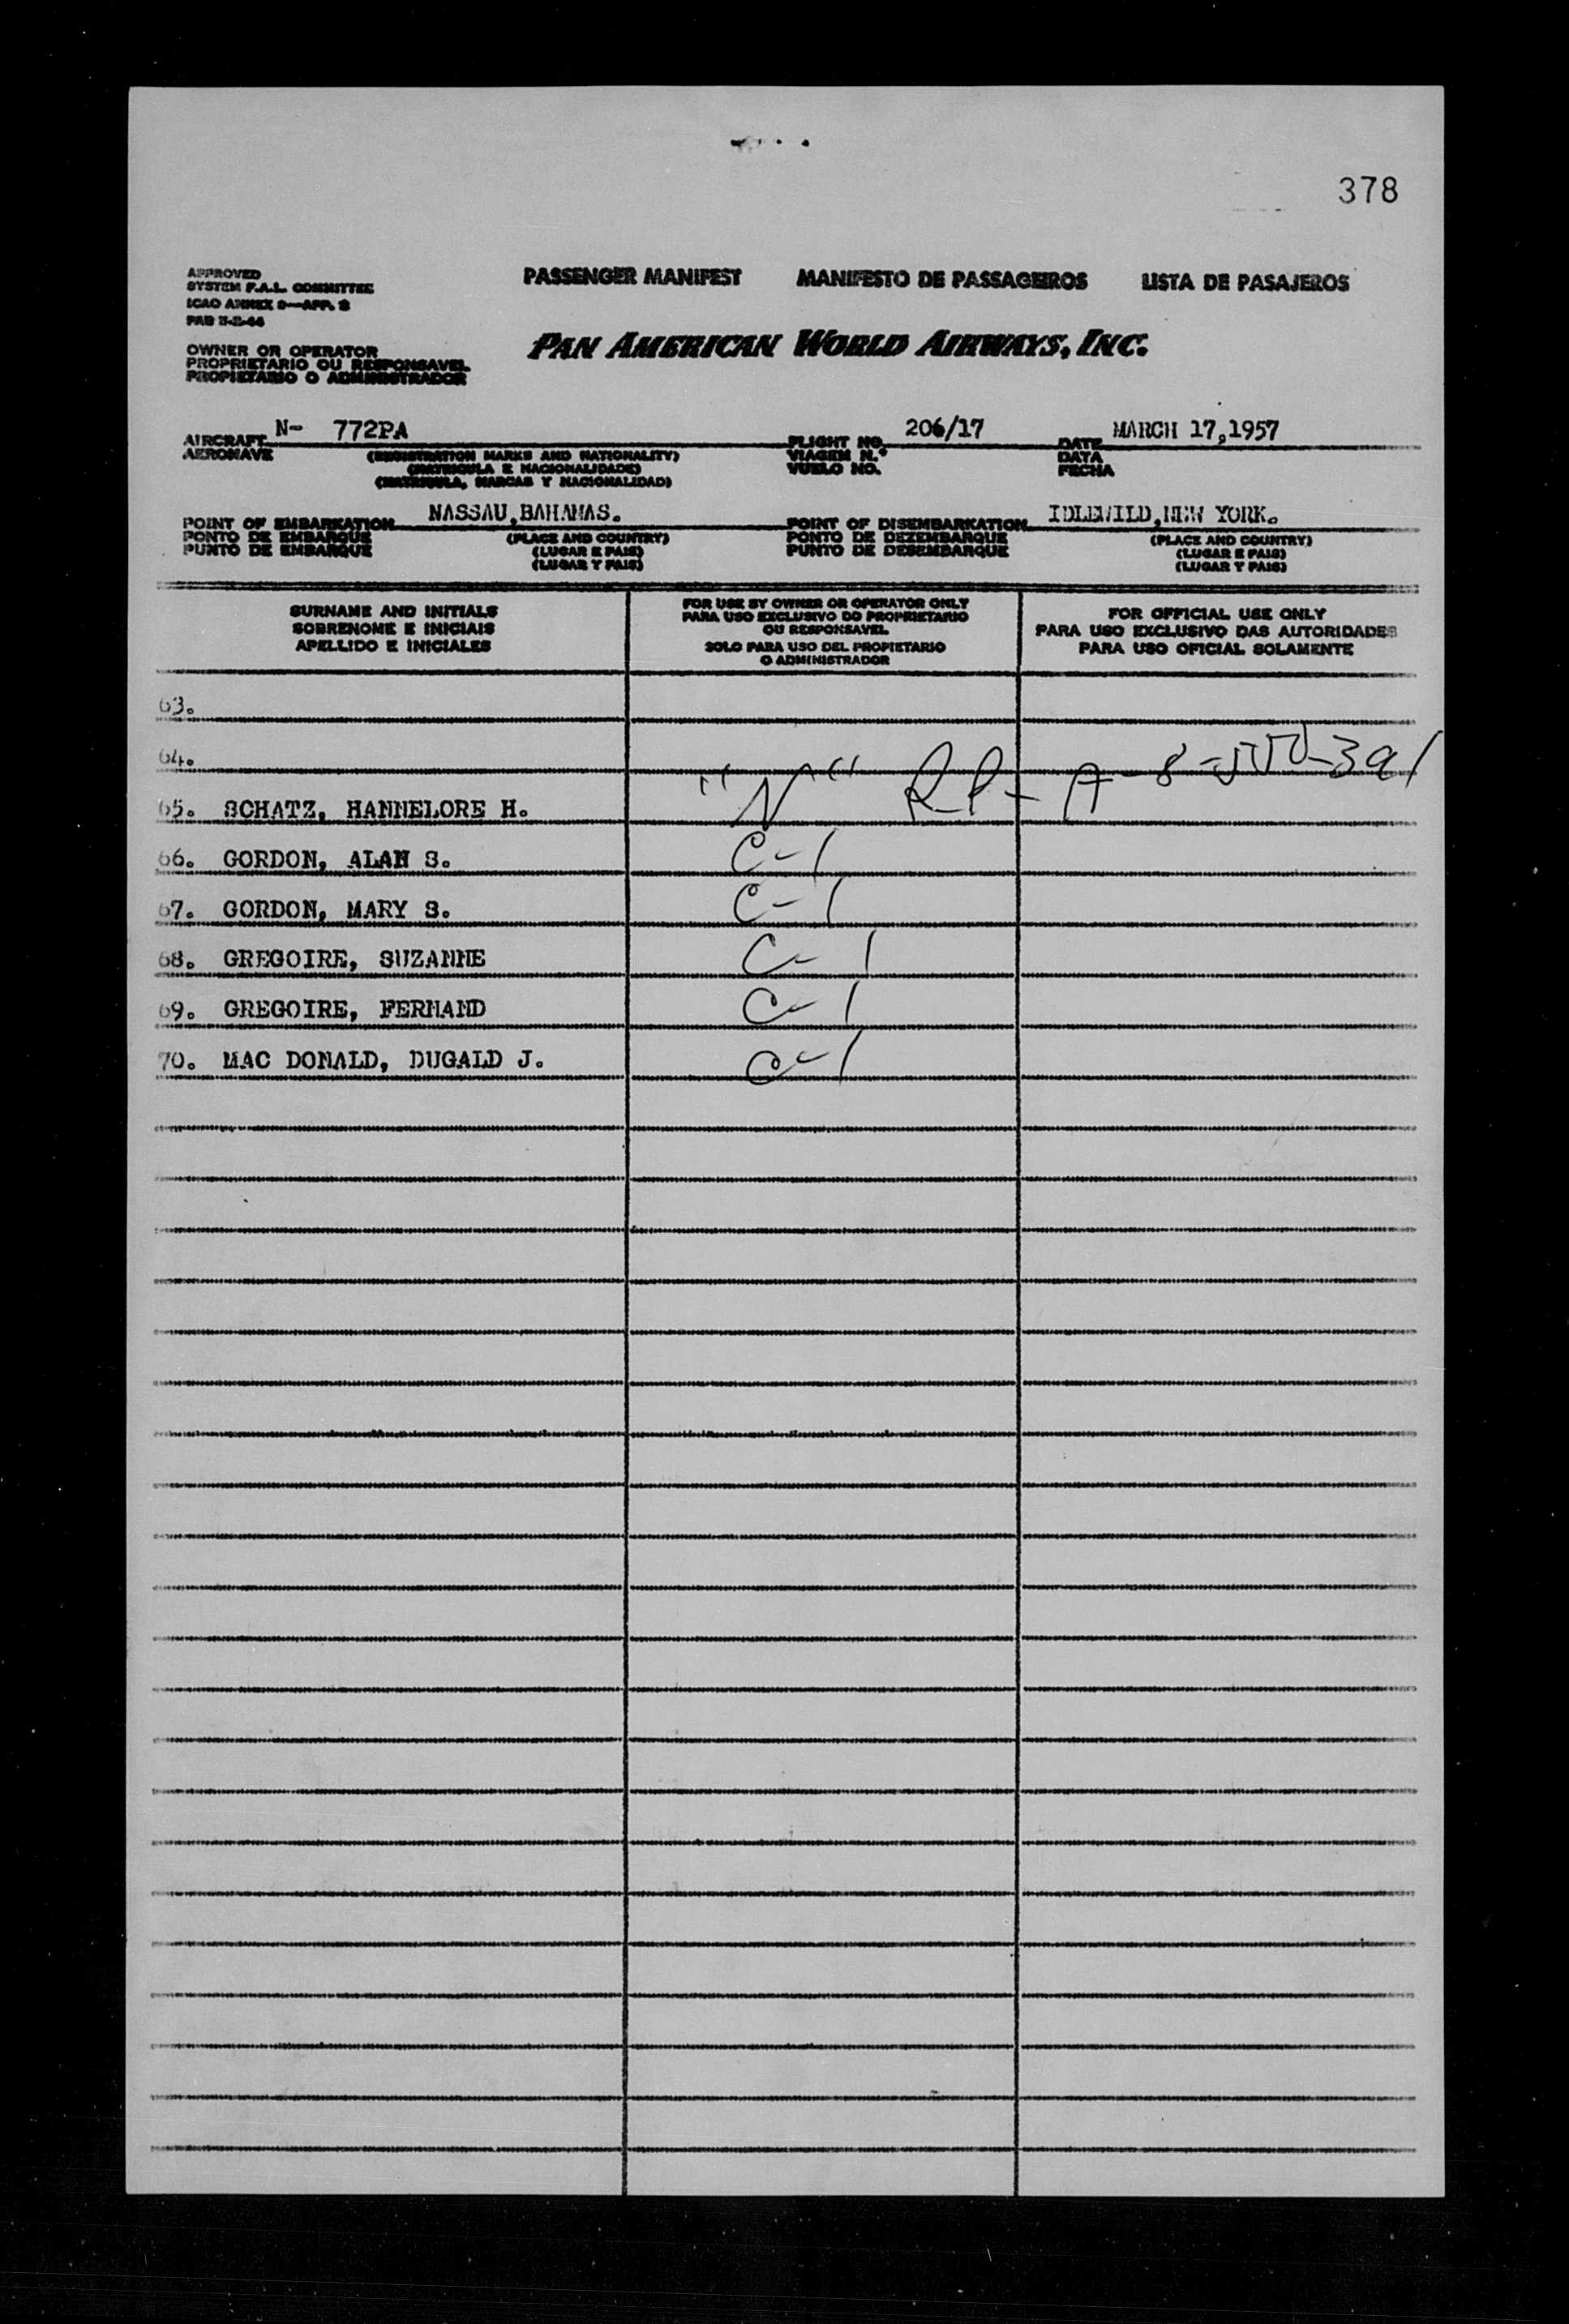 378
APPROVED
SYSTEM F.A.L. COMMITTEE
ICAO ANNEX 9—APP. 2
PASSENGER MANIFEST MANIFESTO DE PASSAGEIROS LISTA DE PASAJEROS
PAN AMERICAN WORLD AIRWAYS, INC.
OWNER OR OPERATOR
PROPRIETARIO OU RESPONSAVEL
PROPIETARIO O ADMINISTRADOR
AIRCRAFT N- 772PA FLIGHT NO. 206/17 DATE MARCH 17,1957
AERONAVE (REGISTRATION MARKS AND NATIONALITY) VIAGEM N.° DATA
(MATRICULA E NACIONALIDADE) VUELO NO. FECHA
(MATRICULA, MARCAS Y NACIONALIDAD)
POINT OF EMBARKATION NASSAU,BAHAMAS. POINT OF DISEMBARKATION IDLEWILD,NEW YORK.
PONTO DE EMBARQUE (PLACE AND COUNTRY) PONTO DE DEZEMBARQUE (PLACE AND COUNTRY)
PUNTO DE EMBARQUE (LUGAR E PAIS) PUNTO DE DESEMBARQUE (LUGAR E PAIS)
(LUGAR Y PAIS) (LUGAR Y PAIS)
SURNAME AND INITIALS
SOBRENOME E INICIAIS
APELLIDO E INICIALES
FOR USE BY OWNER OR OPERATOR ONLY
PARA USO EXCLUSIVO DO PROPRIETARIO
OU RESPONSAVEL
SOLO PARA USO DEL PROPIETARIO
O ADMINISTRADOR
FOR OFFICIAL USE ONLY
PARA USO EXCLUSIVO DAS AUTORIDADES
PARA USO OFICIAL SOLAMENTE
63.
64.
65. SCHATZ, HANNELORE H. "N" RP- A-8-550-391
66. GORDON, ALAN S. C-1
67. GORDON, MARY S. C-1
68. GREGOIRE, SUZANNE C-1
69. GREGOIRE, FERNAND C-1
70. MAC DONALD, DUGALD J. C-1